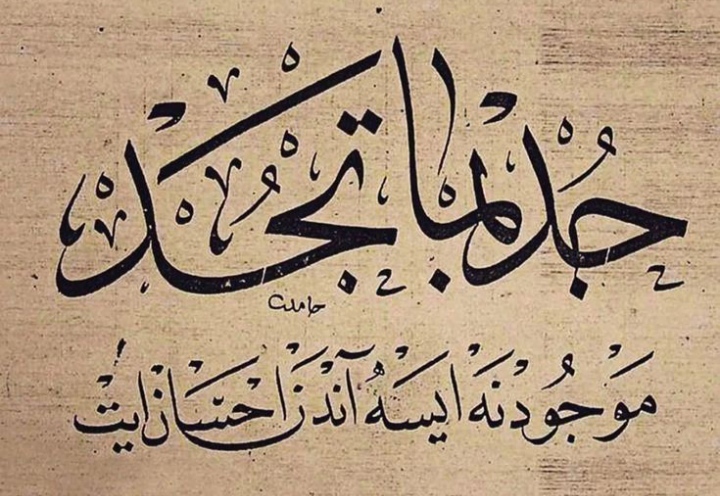 جُدْ بِمَا تَجِدُ
حامد
مَوْجُودْ نَه اَيسَه آندَنْ اِحْسَانْ اَيتْ